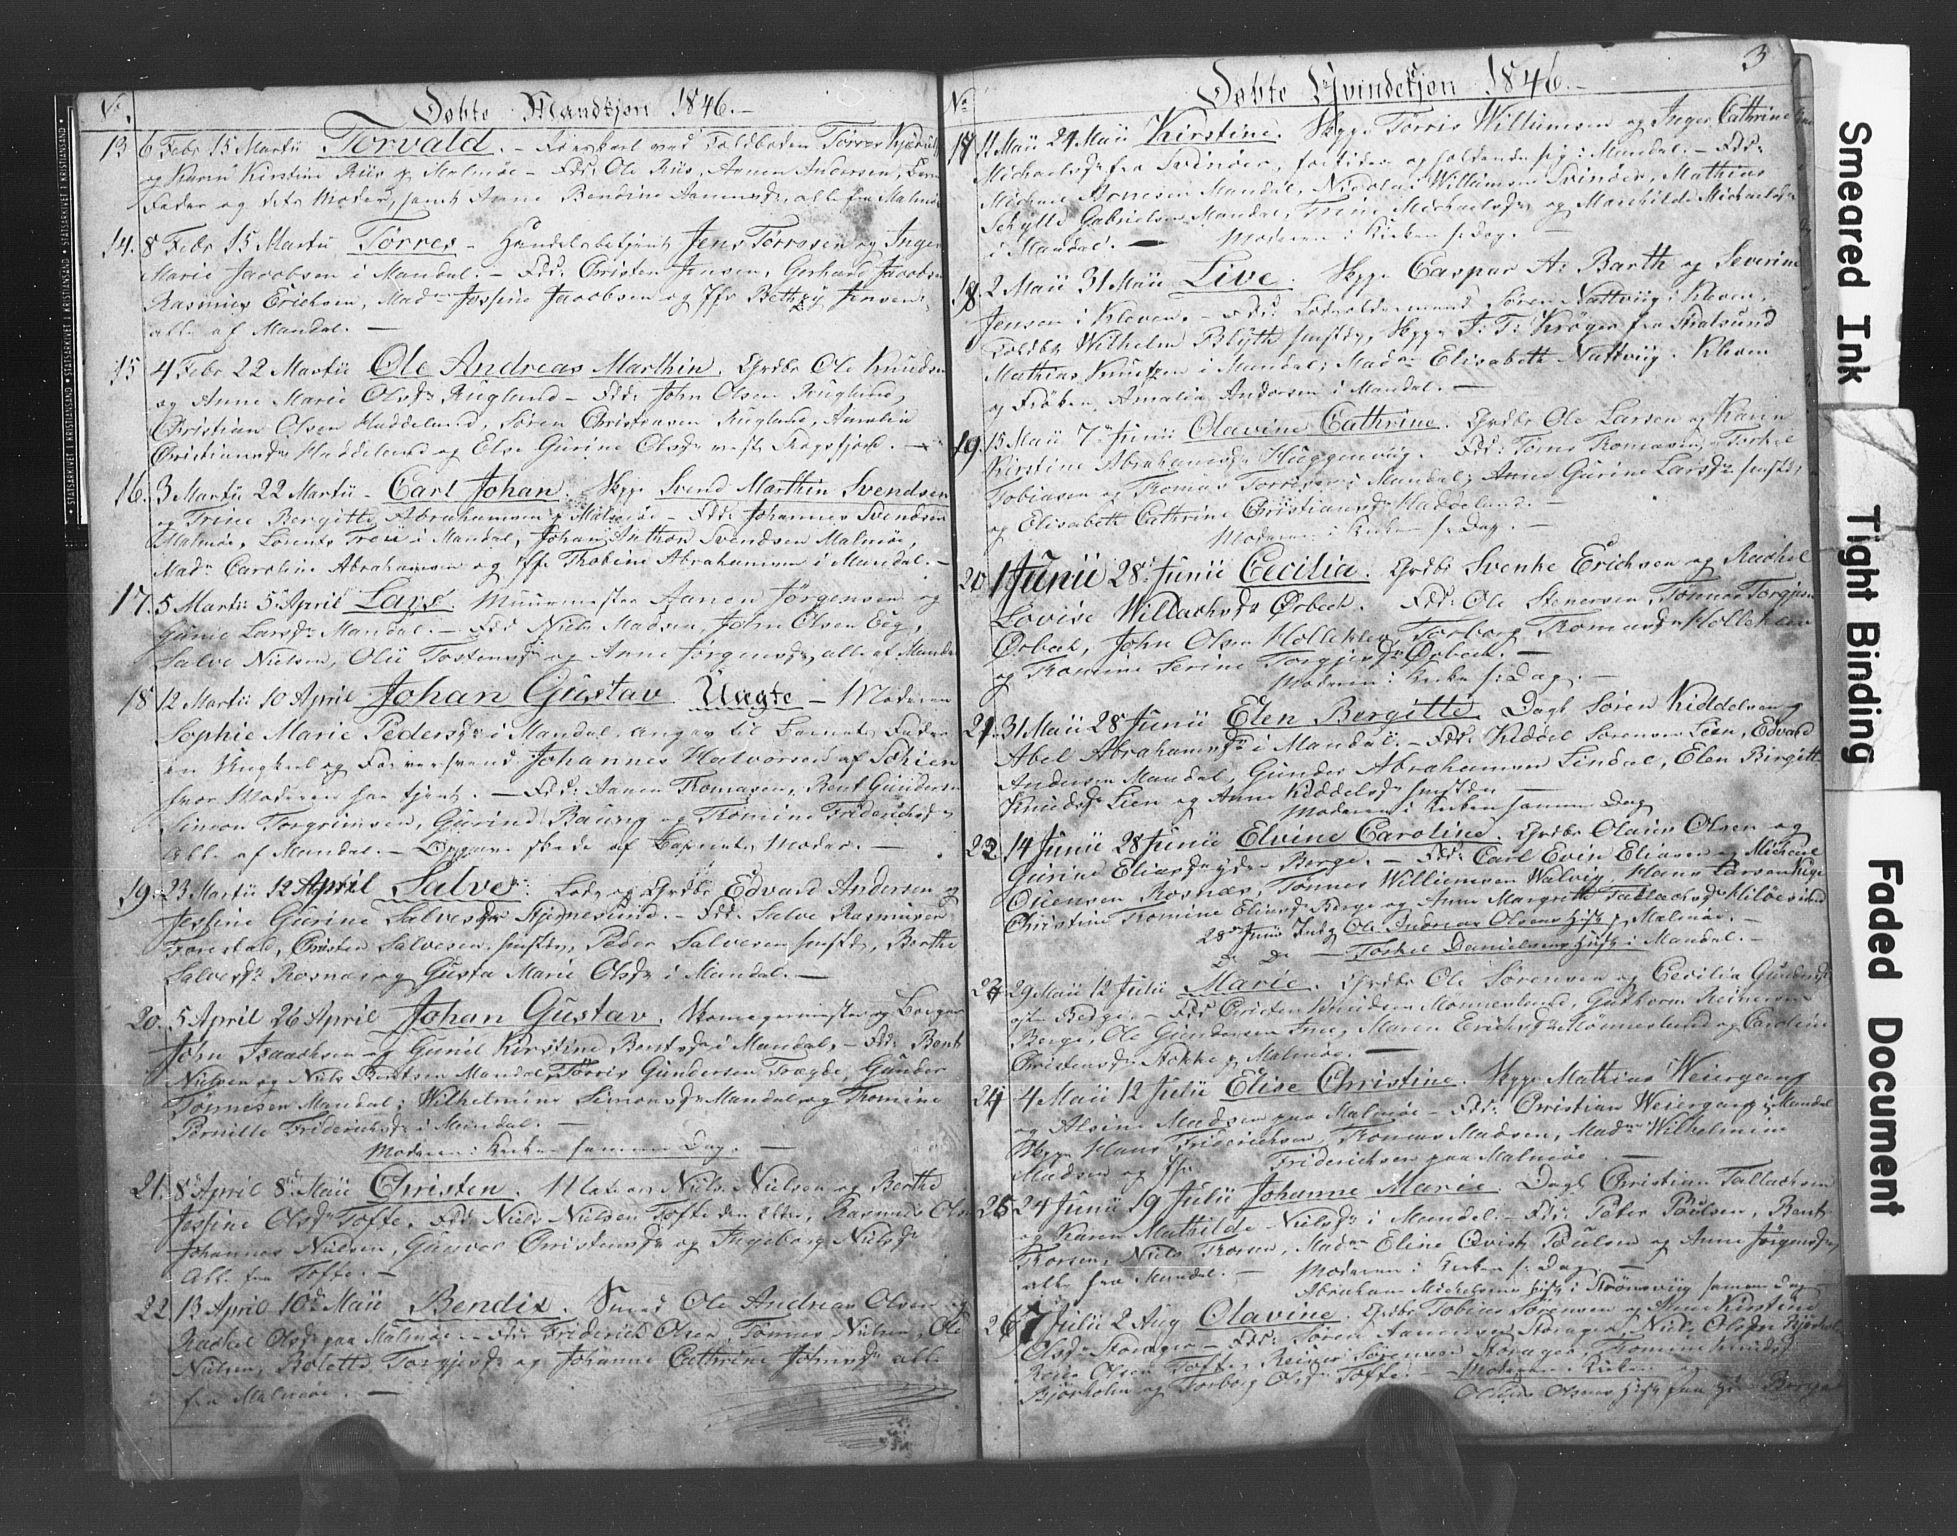 No. Døbte Mandkjøn 1846.
13 6 Febr 15 Martii Torvald. - ved Toldboden Tørres
og Karen Kirstine Riis p Malmøe - Fdd: Ole Riis, Aanen Andersen,
Fader og dets Moder, samt Anne Bendine alle fra Malmøe
14. 8 Febr 15 Martii Tørres - Handelsbetjent Jens Tørresen og Inger
Marie Jacobsen i Mandal. - Fdd: Christen Jensen, Gerhard Jacobsen
Rasmus Erichsen, Madm Jessine Jacobsen og Jfr Bethzy Jensen,
alle af Mandal. -
15 4 Febr 22 Martii Ole Andreas Marthin. Grdbr Ole Knudsen
og Anne Marie Olsdr Ruglund - Fdd: John Olsen Ruglund,
Christian Olsen Haddeland, Søren Christensen Ruglund, Amalia
Christiansdr Haddeland og Else Gurine Olsdr
16. 3 Martii 22 Martii - Carl Johan. Skpr Svend Marthin Svendsen
og Trine Bergitte Abrahamsen p Malmøe - Fdd: Johannes Svendsen
Malmøe, Lorents i Mandal, Johan Anthon Svendsen Malmøe,
Madm Caroline Abrahamsen og Jfr Thobine Abrahamsen i Mandal. -
17. 5 Martii 5 April Lars. Muurmester Aanen Jørgensen og
Gunie Larsdr Mandal. - Fdd Niels Madsen, John Olsen Eeg,
Salve Nielsen, Olii Tostensdr og Anne Jørgensdr, alle af Mandal
18 12 Martii 10 April Johan Gustav Uægte - Moderen
Sophie Marie Pedersdr i Mandal, angav til Barnets Fader
en Ungkarl og Johannes Halvorsen af
hvor Moderen har tjent. - Fdd: Aanen Thomasen, Bent Gundersen
Simon Torgrimsen, Gurine og Thomine Friderichsdr
Alle af Mandal. - skede af Barnets Moder. -
19. 23 Martii 12 April Salve. og Grdbr Edvard Andersen og
Jessine Gurine Salvesdr Stjernesund. - Fdd: Salve Rasmusen
Forestad, Christen Salvesen ibidem, Peder Salvesen ibidem, Berthe
Salvesdr Rosnæs og Gusta Marie Olsdr i Mandal. -
20. 5 April 26 April Johan Gustav. Skomagermester og Borger
John Isaachsen og Gunil Kirstine Bentsdr i Mandal. - Fdd: Bent
Nielsen og Niels Bentsen Mandal, Tørris Gundersen Trægde, Gunder
Tønnesen Mandal; Wilhelmine Simonsdr Mandal og Thomine
Pernille Friderichsdr i Mandal. -
Moderen i Kirken samme Dag. -
21. 8 April 8 Maii Christen. Matros Niels Nielsen og Berthe
Jessine Olsdr Tofte. Fdd: Niels Nielsen Tofte den eldre, Rasmus Olsen
Johannes Nielsen, Gunvor Christensdr og Ingeborg Nielsdr
Alle fra Tofte. -
22. 13 April 10 Maii Bendix. Smed Ole Andreas Olsen og
Rachel Olsdr paa Malmøe. - Fdd: Friderich Olsen, Tønnes Nielsen, Ole
Nielsen, Rolette Torgjersdr og Johanne Cathrine Johnsdr alle
fra Malmøe. -
3
No. Døbte Qvindekjøn 1846. -
17 11 Maii 24 Maii Kirstine. Skpr Tørris Willumsen og Inger Cathrine
Michaelsdr fra Svinøer, for tiden opholdende sig i Mandal. - Fdd:
Michael Mandal, Nicolai Willumsen Svinøer, Mathias
Schytte Gabrielsen Mandal, Trine Michaelsdr og Mathilde Michaelsdr
i Mandal. - Moderen i Kirken s: Dag. -
18. 2 Maii 31 Maii Live. Skpr Caspar A: Barth og Severine
Jensen i Kleven. - Fdd: Lodsoldermand Søren Nattvig i Kleven,
Toldbt Wilhelm Blyth ibidem, Skpr J: T: Krøger fra Stralsund
Mathias Knudsen i Mandal; Madm Elisabeth Nattvig, Kleven
og Frøken Amalia Andersen i Mandal. -
19. 15 Maii 7 Junii Olavine Cathrine. Grdbr Ole Larsen og Karen
Kirstine Abrahamsdr Huggenvig. Fdd: Tørres Thomasen, Torkel
Tobiasen og Thomas Torrisen i Mandal; Anne Gurine Larsdr ibidem
og Elisabeth Cathrine Christiansdr Haddeland. -
Moderen i Kirken s: Dag. -
20. 1 Junii 28 Junii Cecilia. Grdbr Svenke Erichsen og Rachel
Lovise Willachsdr Ørbech. Fdd: Ole Stenersen, Tønnes Torgjersen
Ørbech, John Olsen Holleklev, Torborg Thomasdr Holleklev
og Thomine Serine Torgjersdr Ørbech. -
Moderen i Kirken s: Dag. -
21. 31 Maii 28 Junii Elen Bergitte. Dagl Søren Kiddelsen og
Abel Abrahamsdr i Mandal. - Fdd: Kiddel Sørensen Leen, Edvard
Andersen Mandal, Gunder Abrahamsen Lindal, Elen Birgitte
Knudsdr Leen og Anne Kiddelsdr ibidem -
Moderen i Kirken samme Dag
22 14 Junii 28 Junii Elvine Caroline. Grdbr Olaus Olsen og
Gurine Eliasdr ydre Berge. - Fdd: Carl Evin Eliasen, Michael
Ouensen Rosnæs, Tønnes Williumsen Walvig, Hans Larsen
Christine Thomine Eliasdr Berge og Anne Margrethe Tallachsdr
28 Junii Indg Ole Andreas Olsens Hustr p Malmøe. -
Do Do - Torkel Danielsens Hustr i Mandal. -
23 29 Maii 12 Julii Marie. Grdbr Ole Sørensen og Cecilia Gundersdr
Berge - Fdd: Christen Knudsen Monneslund, Guthorm Reiersen
Berge, Ole Gundersen Ime, Maren Erichsdr Monneslund og Caroline
Christensdr Stokke p Malmøe. -
24 4 Maii 12 Julii Elise Christine. Skpr Mathias Weiergang
og Alvine Madsen paa Malmøe - Fdd: Christian Weiergang i Mandal
Skpr Hans Friderichsen, Thomas Madsen, Madme Wilhelmine
Madsen og Jfr Friderichsen paa Malmøe. -
25 24 Junii 19 Julii Johanne Marie. Dagl Christian Tallachsen
og Karen Mathilde Nielsdr i Mandal. - Fdd: Peter Poulsen, Bent
Thorsen, Niels Thorsen, Madme Eline Qvist Poulsen og Anne Jørgensdr
alle fra Mandal. - Moderen i Kirken s: Dag. -
Abraham Michelsens Hustr i Strømsvig samme Dag
26 7 Julii 2 Aug Olavine. Grdbr Tobias Sørensen og Anne Kirstine
Olsdr Storager - Fdd: Søren Aanensen Storager, Niels Olsen Bjørholm
Reier Olsen Tofte, Reier Sørensen Storager, Thomine Knudsdr
Bjørholm og Torborg Olsdr Tofte. - Moderen i Kirken og
Olaus Olsens Hustr paa Berge
Smeared Ink
Tight Binding
Faded Document
• STATSARKIVET I KRISTIANSAND • STATSARKIVET I KRISTIANSAND • STATSARKIVET I KRISTIANSAND •